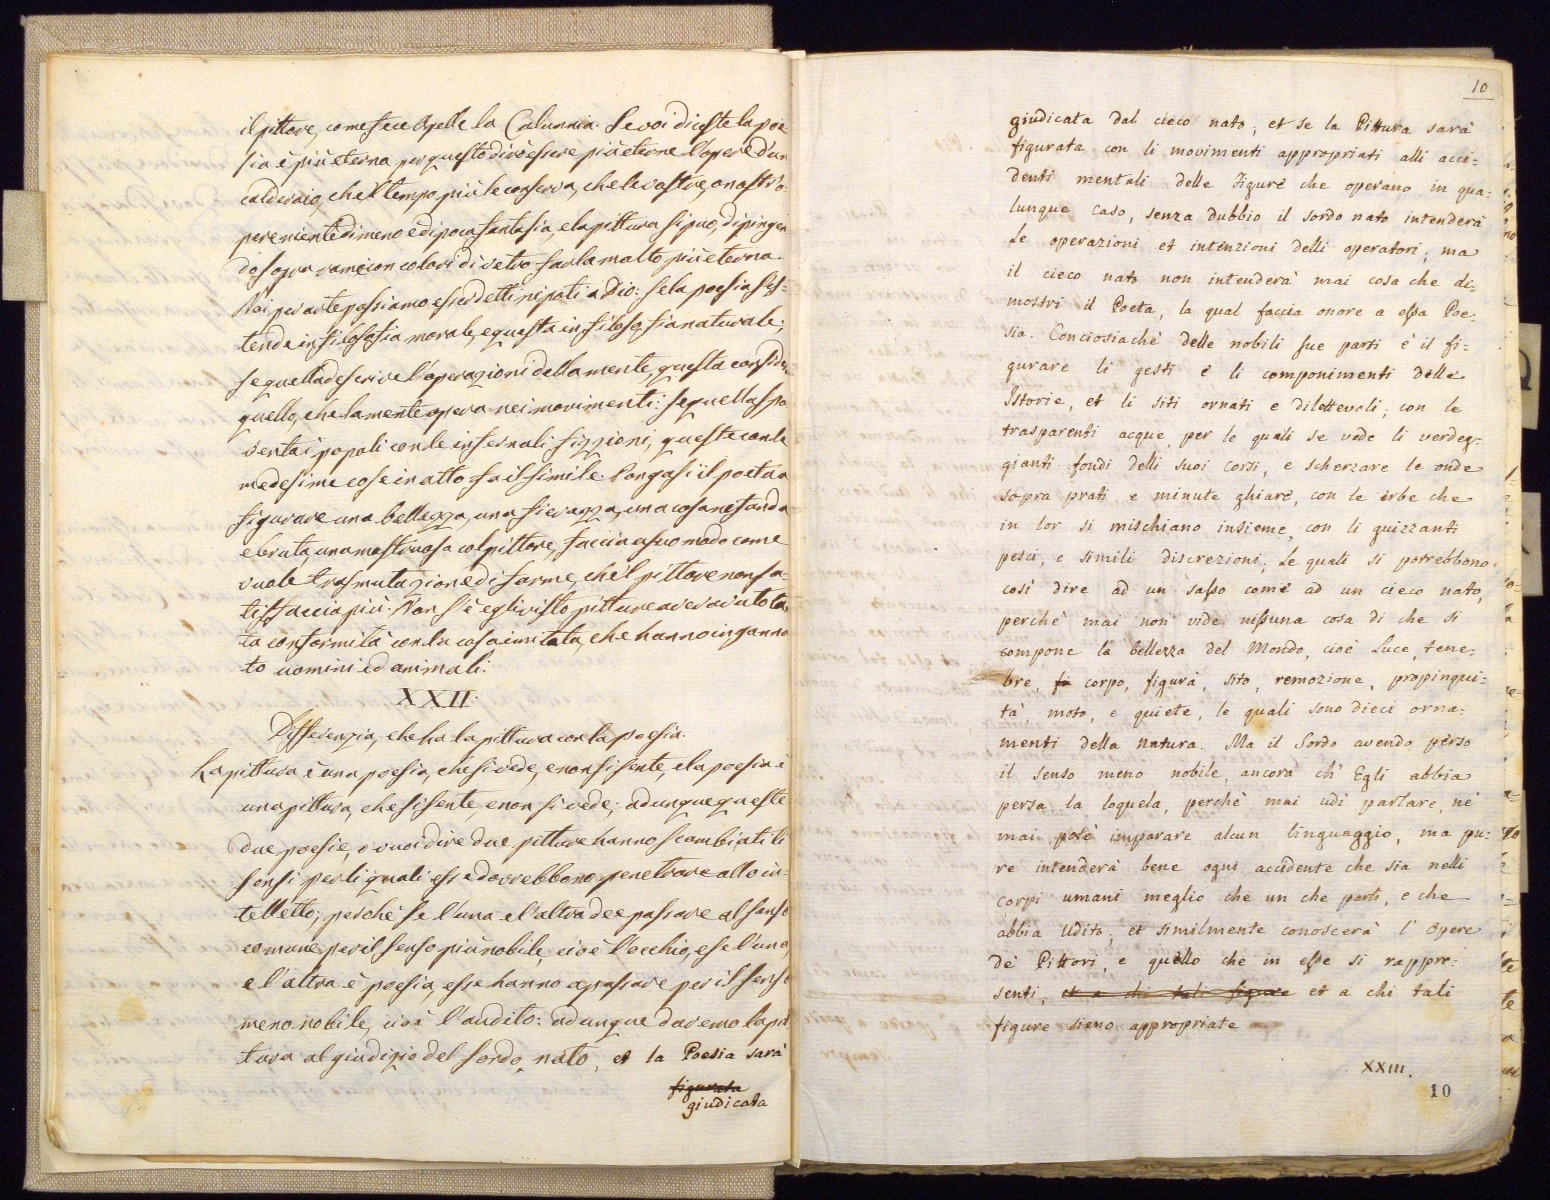 il pittore, come fece Apelle la Calunnia. Se voi diceste la poe=
sia è più eterna, per questo dirò essere più eterne l'opere d'un
calderaio, che 'l tempo più le conserva, che le vostre, o nostr' o=
pere, nientedimeno è di poca fantasia, e la pittura si può, dipingen
do sopra rame con colori di vetro farla molto più eterna.
Noi per arte possiamo esser detti nipoti a Dio: se la poesia s'es=
tende in filosofia morale, e questa in filosofia naturale;
se quella descrive l'operazioni della mente, questa consider
quello, che la mente opera nei movimenti: se quella spa
venta i popoli con le infernali finzioni, queste con le
medesime cose in atto fa il simile. Pongasi il poeta a
figurare una bellezza, una fierezza, una cosa nefanda
e bruta, una mostruosa col pittore, faccia a suo modo come
vuole trasmutazione di forme, che 'l pittore non sa=
tisfaccia più. Non s'è egli visto pitture aver avuto ta
ta conformità con la cosa imitata, che hanno inganna
to uomini ed animali:
XXII.
Differenzia, che ha la pittura con la poesia.
La pittura è una poesia, che si vede, e non si sente, e la poesia è
una pittura, che si sente, e non si vede; adunque queste
due poesie, o vuoi dire due pitture hanno scambiati li
sensi per li quali esse dovrebbono penetrare allo in=
telletto; perché se l'una e l'altra dee passare al senso
comune per il senso più nobile, cioè l'occhio, e se l'una,
e l'altra è poesia, esse hanno a passare per il senso
meno nobile, cioè l'audito: adunque daremo la pit
tura al giudizio del sordo nato, et la Poesia sarà
figurata
giudicata
10
giudicata dal cieco nato; et se la Pittura sarà
figurata con li movimenti appropriati alli acci=
denti mentali delle Figure che operano in qua=
lunque caso, senza dubbio il sordo nato intenderà
le operazioni et intenzioni delli operatori; ma
il cieco nato non intenderà mai cosa che di=
mostri il Poeta, la qual faccia onore a essa Poe=
sia. Conciosiachè delle nobili sue parti è il fi=
gurare li gesti e li componimenti delle
Istorie, et li siti ornati e dilettevoli, con le
trasparenti acque, per le quali se vede li verdeg=
gianti fondi delli suoi corsi, e scherzare le onde
sopra prati e minute ghiare, con le erbe che
in lor si mischiano insieme, con li guizzanti
pesci, e simili discrezioni, le quali si potrebbono
così dire ad un sasso come ad un cieco nato,
perchè mai non vide nissuna cosa di che si
compone la bellezza del Mondo, cioè Luce, tene=
bre, fi corpo, figura, sito, remozione, propinqui=
tà, moto, e quiete, le quali sono dieci orna=
menti della natura. Ma il Sordo avendo perso
il senso meno nobile, ancora ch' Egli abbia
persa la loquela, perchè mai udi parlare, nè
mai potè imparare alcun linguaggio, ma pu=
re intenderà bene ogni accidente che sia nelli
corpi umani meglio che un che parli, e che
abbia udito, et similmente conoscerà l' opere
de' Pittori, e quello che in esse si rappre=
senti, et a chi tali figure et a chi tali
figure sieno appropriate
XXIII.
10